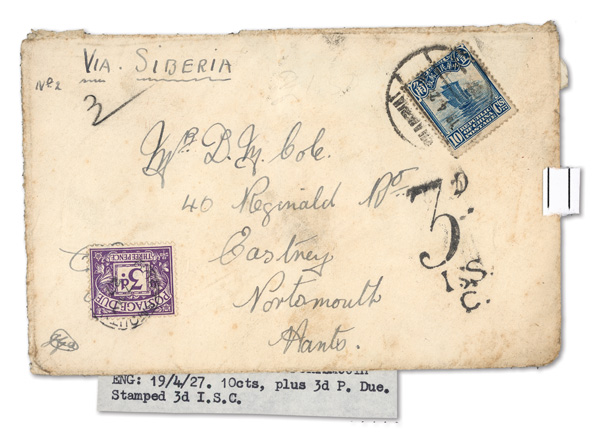 VIA. SIBERIA
No 2
3
Mrs D. M. Cole.
40 Reginald Rd
Eastney
Portsmouth
Hants.
SHANGHAI
10 CTS
3D
I.S.C.
POSTAGE DUE
3D
THREE PENCE
ENG: 19/4/27. 10cts, plus 3d P. Due.
Stamped 3d I.S.C.